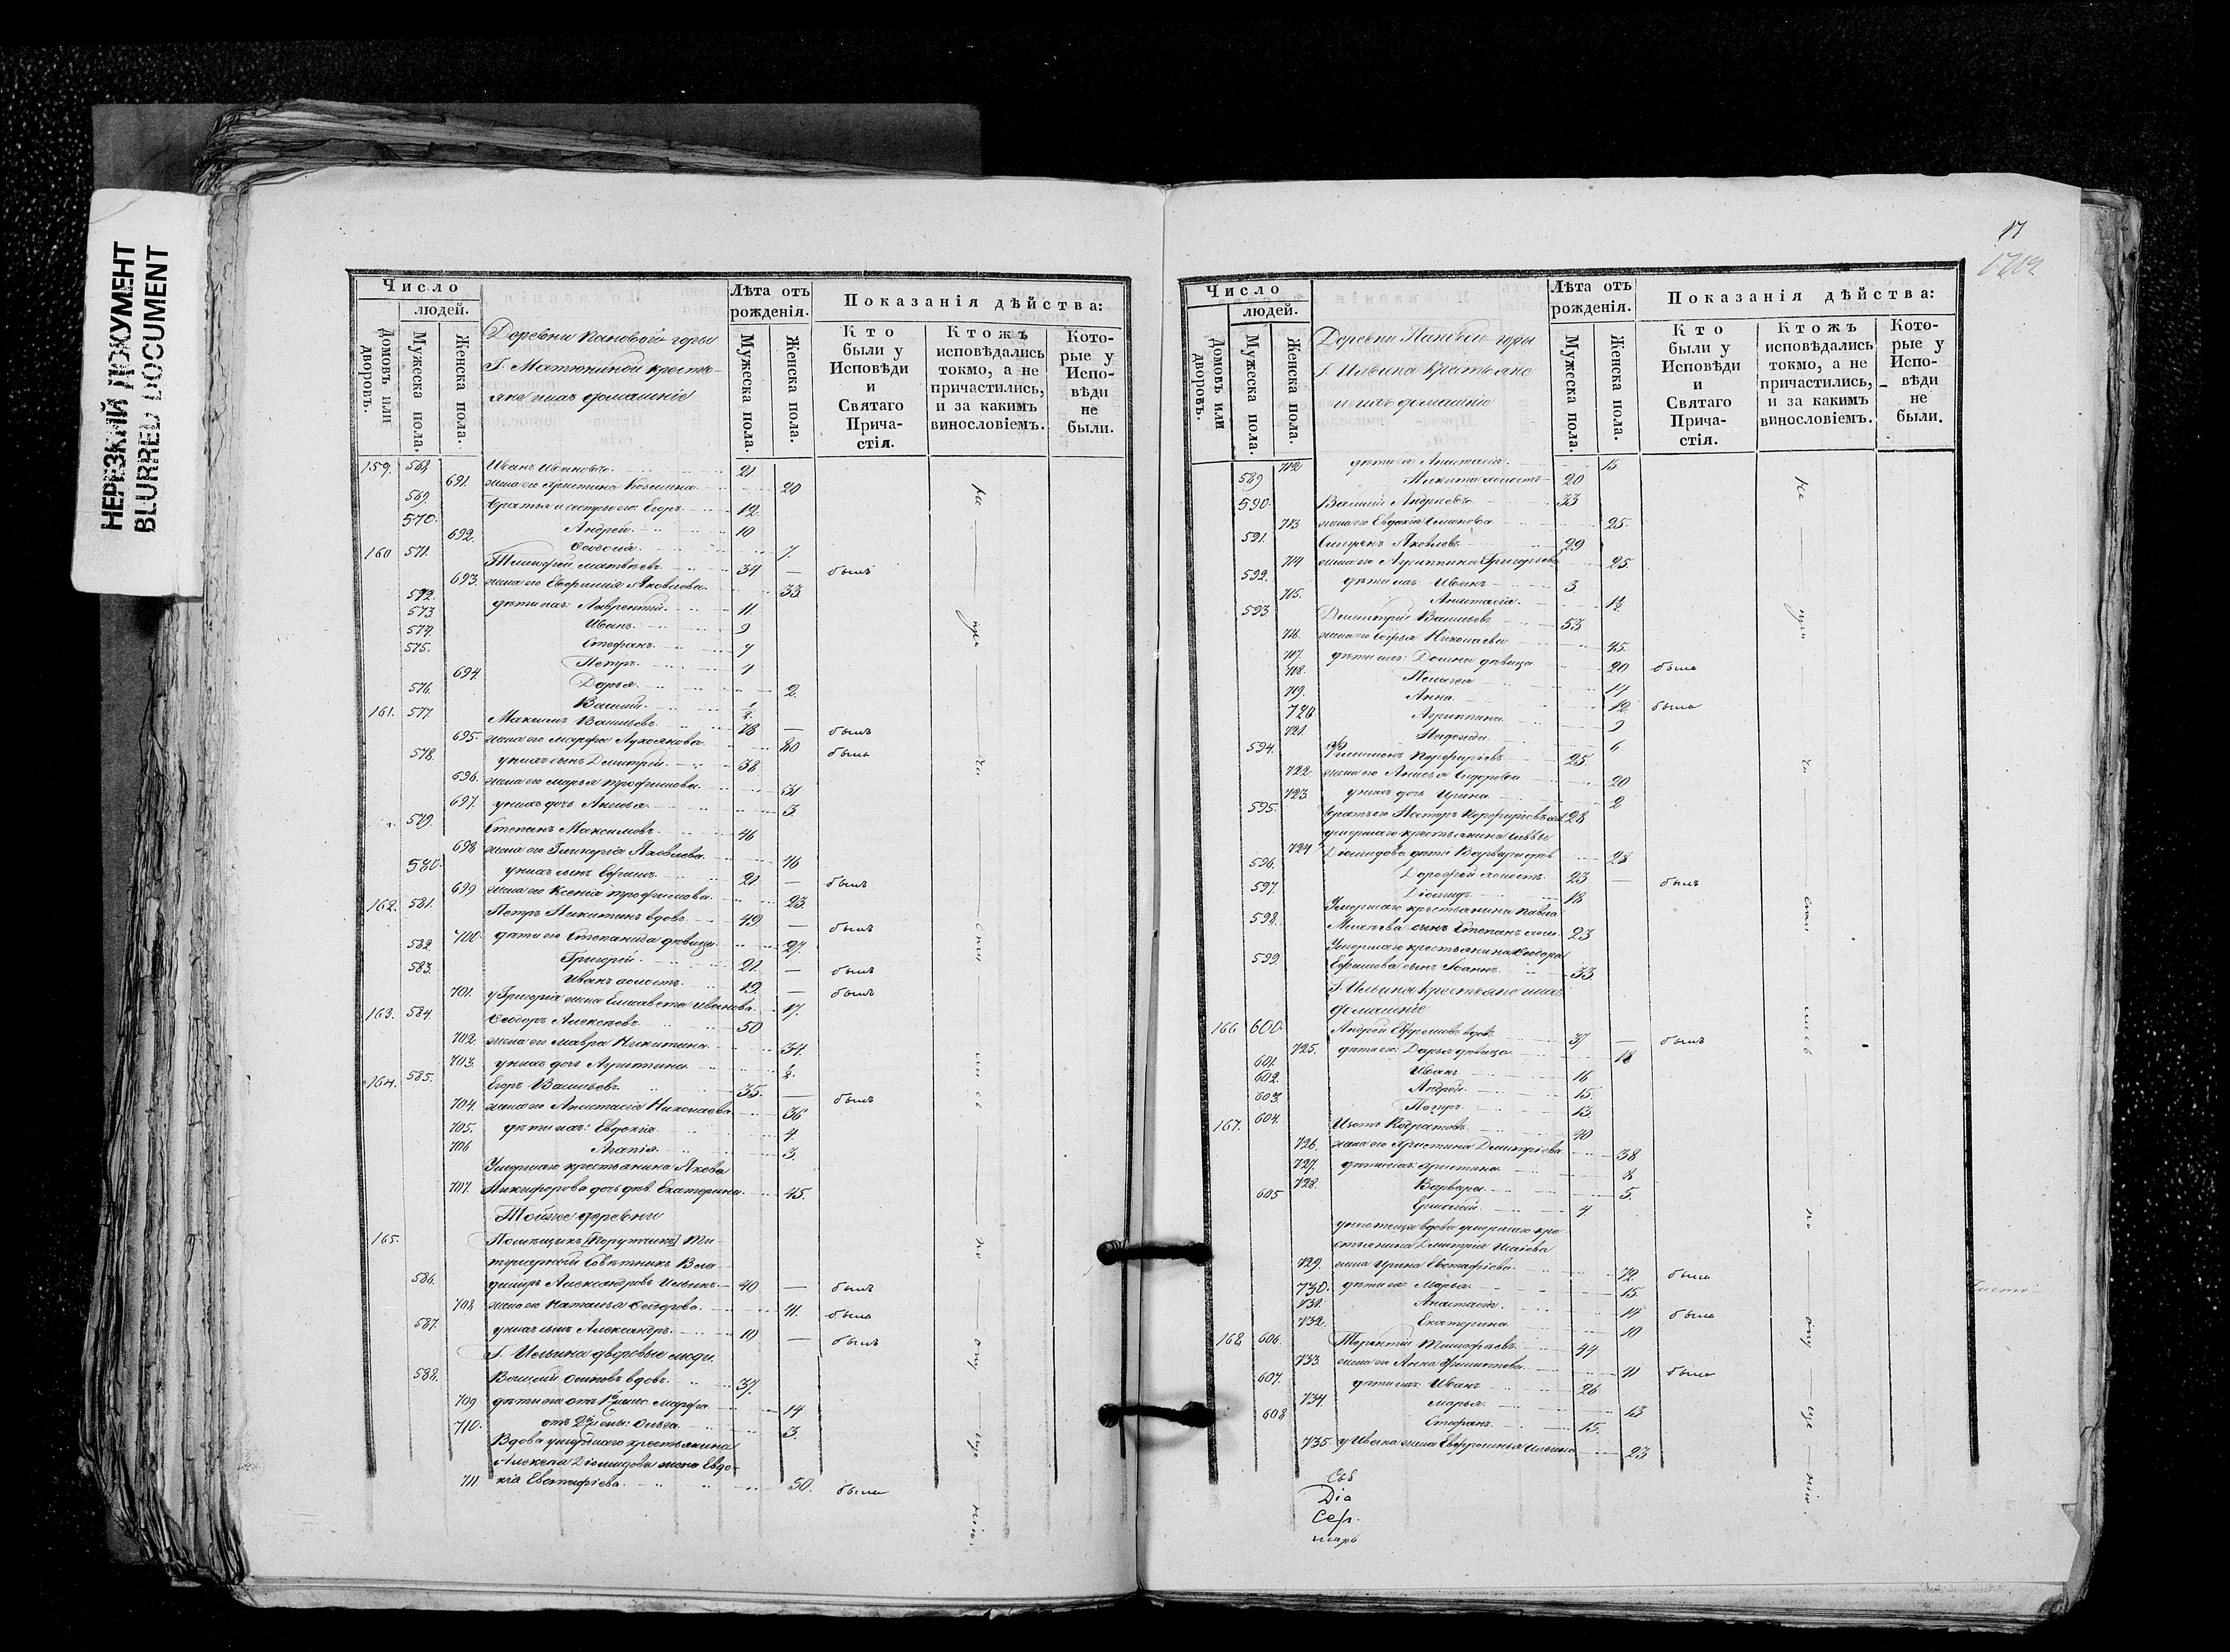 НЕРЕЗКИЙ ДОКУМЕНТ
BLURRED DOCUMENT
Число
людей.
Домовъ или дворовъ.
Мужеска пола.
Женска пола.
Деревни Пановой горы
Г. Матюниной кресть-
яне и ихъ домашніе
Лѣта отъ рожденія.
Мужеска пола.
Женска пола.
Показанія дѣйства:
Кто были у Исповѣди и Святаго Прича-стія.
Ктожъ исповѣдались токмо, а не причастились, и за какимъ винословіемъ.
Кото-рые у Испо-вѣди не были.
159. 568. Иванъ Ивановъ 21
691. жена его Христина Козмина 20
569. братья и сестры его: Егоръ 12.
570. Андрей 10
692. Ѳеодосія 7.
160 571. Тимофей Матвѣевъ 34 — былъ
693. жена его Евфимія Яковлева 33
572. дѣти ихъ: Лаврентій 11
573 Иванъ 9
574. Стефанъ 7
575. Петръ 4
694. Дарья 2.
576. Василій 1/2
161. 577. Максимъ Васильевъ 78 — былъ
695. жена его Марфа 80 была
578. у нихъ сынъ Димитрій 38
696. жена его Марья Трофимова 31
697. у нихъ дочь Аксинья 3
579. Степанъ Максимовъ 46
698 жена его Гликерія Яковлева 46
580. у нихъ сынъ Ефимъ 21 — былъ
699 жена его Ксенія Трофимова 23
162. 581. Петръ Никитинъ вдовъ 49 — былъ
700. дѣти его Степанида дѣвица 27.
582 Григорій 21 — былъ
583. Иванъ холостъ 19. — былъ
701. у Григорія жена Елисавета Иванова 17.
163. 584. Ѳеодоръ Алексѣевъ 50
702. жена его Мавра Никитина 34.
703. у нихъ дочь Агриппина 1/2
164. 585. Егоръ Васильевъ 35. — былъ
704. жена его Анастасія Николаева 36
705. дѣти ихъ: Евдокія 4
706 Агапія 3.
Умершаго крестьянина Якова
707. Никифорова дочь дѣв. Екатерина 45.
Той же деревни
165. Помѣщикъ [Порутчикъ] Ти-
тулярный Совѣтникъ Вла-
586. диміръ Александровъ Ильинъ 40 — былъ
708 жена его Наталья Ѳеодорова 41. была
587. у нихъ сынъ Александръ 10 — былъ
Г. Ильина дворовые люди
588. Василій Осиповъ вдовъ 37.
709 дѣти его отъ 1й жены Марфа 14
710. отъ 2й жены: Ольга 3.
Вдова умершаго крестьянина
Алексѣя Діомидова жена Евдо-
711. кія Евстафіева 50. была
Не при ча сти лись по опу ще нію.
17
Число
людей.
Домовъ или дворовъ.
Мужеска пола
Женска пола.
Деревни Пановой горы
Г. Ильина Крестьяне
и ихъ домашніе
Лѣта отъ рожденія.
Мужеска пола.
Женска пола.
Показанія дѣйства:
Кто были у Исповѣди и Святаго Прича-стія.
Ктожъ исповѣдались токмо, а не причастились, и за какимъ винословіемъ.
Кото-рые у Испо-вѣди не были.
712 дѣти ея: Анастасія 15
589 Никита холостъ 20
590. Василій Андреевъ 33
713 жена его Евдокія Семенова 25.
591. Яковлевъ 29
714 жена его Агриппина Григорьева 25.
592. дѣти ихъ: Иванъ 3
715. Анастасія
593. Димитрій Васильевъ 53
716. жена его Софья Николаева 45.
717. дѣти ихъ: Домна дѣвица 20 была
718. Пелагея 14
719. Анна 12 была
720 Агриппина 9
721. Надежда 6
594. Филимонъ Порфиріевъ 25
722. жена его Анисья Сидорова 20
723. у нихъ дочь Ирина 2
595. братъ его Несторъ Порфиріевъ 28
умершаго крестьянина Саввы
724 Діомидова дѣти Варвара дѣв. 28
596. Дорофей холостъ 23 — былъ
597. Діомидъ 18
Умершаго крестьянина Павла
598. сынъ Степанъ холос. 23
Умершаго крестьянина Ѳеодора
599. Ефимова сынъ Іоаннъ 33
Г. Ильина крестьяне и ихъ
домашніе
166 600. Андрей Ефремовъ вдовъ 37 — былъ
725. дѣти его: Дарья дѣвица 18
601. Иванъ 16
602. Андрей 15.
603. Петръ 13.
167. 604. Кодратовъ 40
726. жена его Христина Димитріева 38
727. дѣти ихъ: Христина 8
728. Варвара 5.
605 4
у него теща вдова умершаго кре-
стьянина Димитрія Исаіева
729. жена Ирина Евстафіева 72 была
730. дѣти ея: Марья 15.
731. Анастасія 14 была
732. Екатерина 10
168 606. Терентій Тимофѣевъ 44
733 жена его Анна 41 была
607. дѣти ихъ: Иванъ 26
734. Марья 13
608 Стефанъ 15.
735. у Ивана жена Евфросинья Ильина 23
Не при ча сти лись по опу ще нію.
Свя
Діа
Сер.